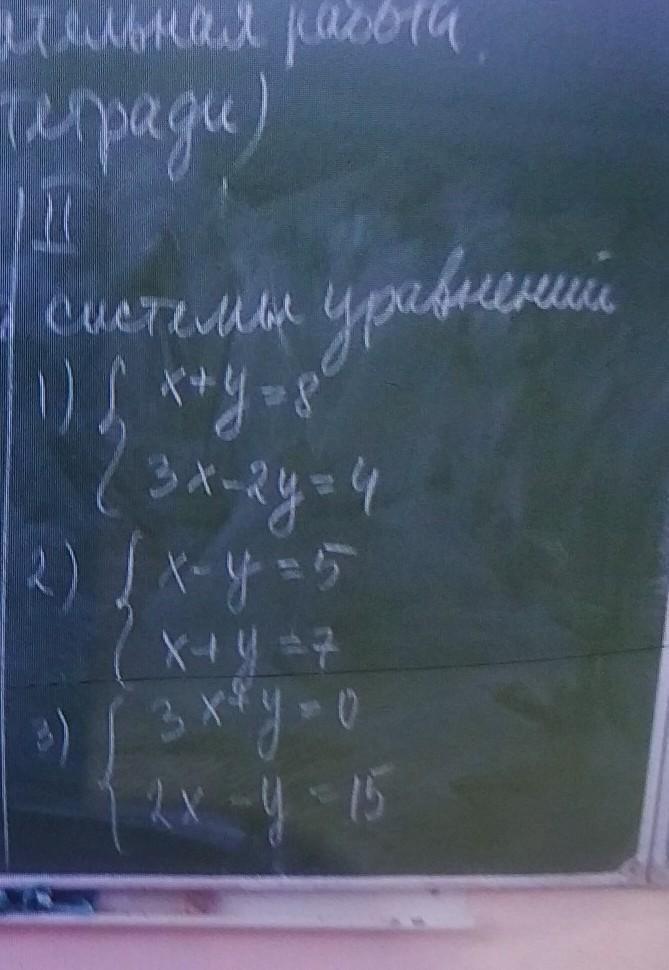 ательная работа
тетради)
II
системы уравнений
1) { x+y=8
3x-2y=4
2) { x-y=5
x+y=7
3) { 3x+y=0
2x-y=15